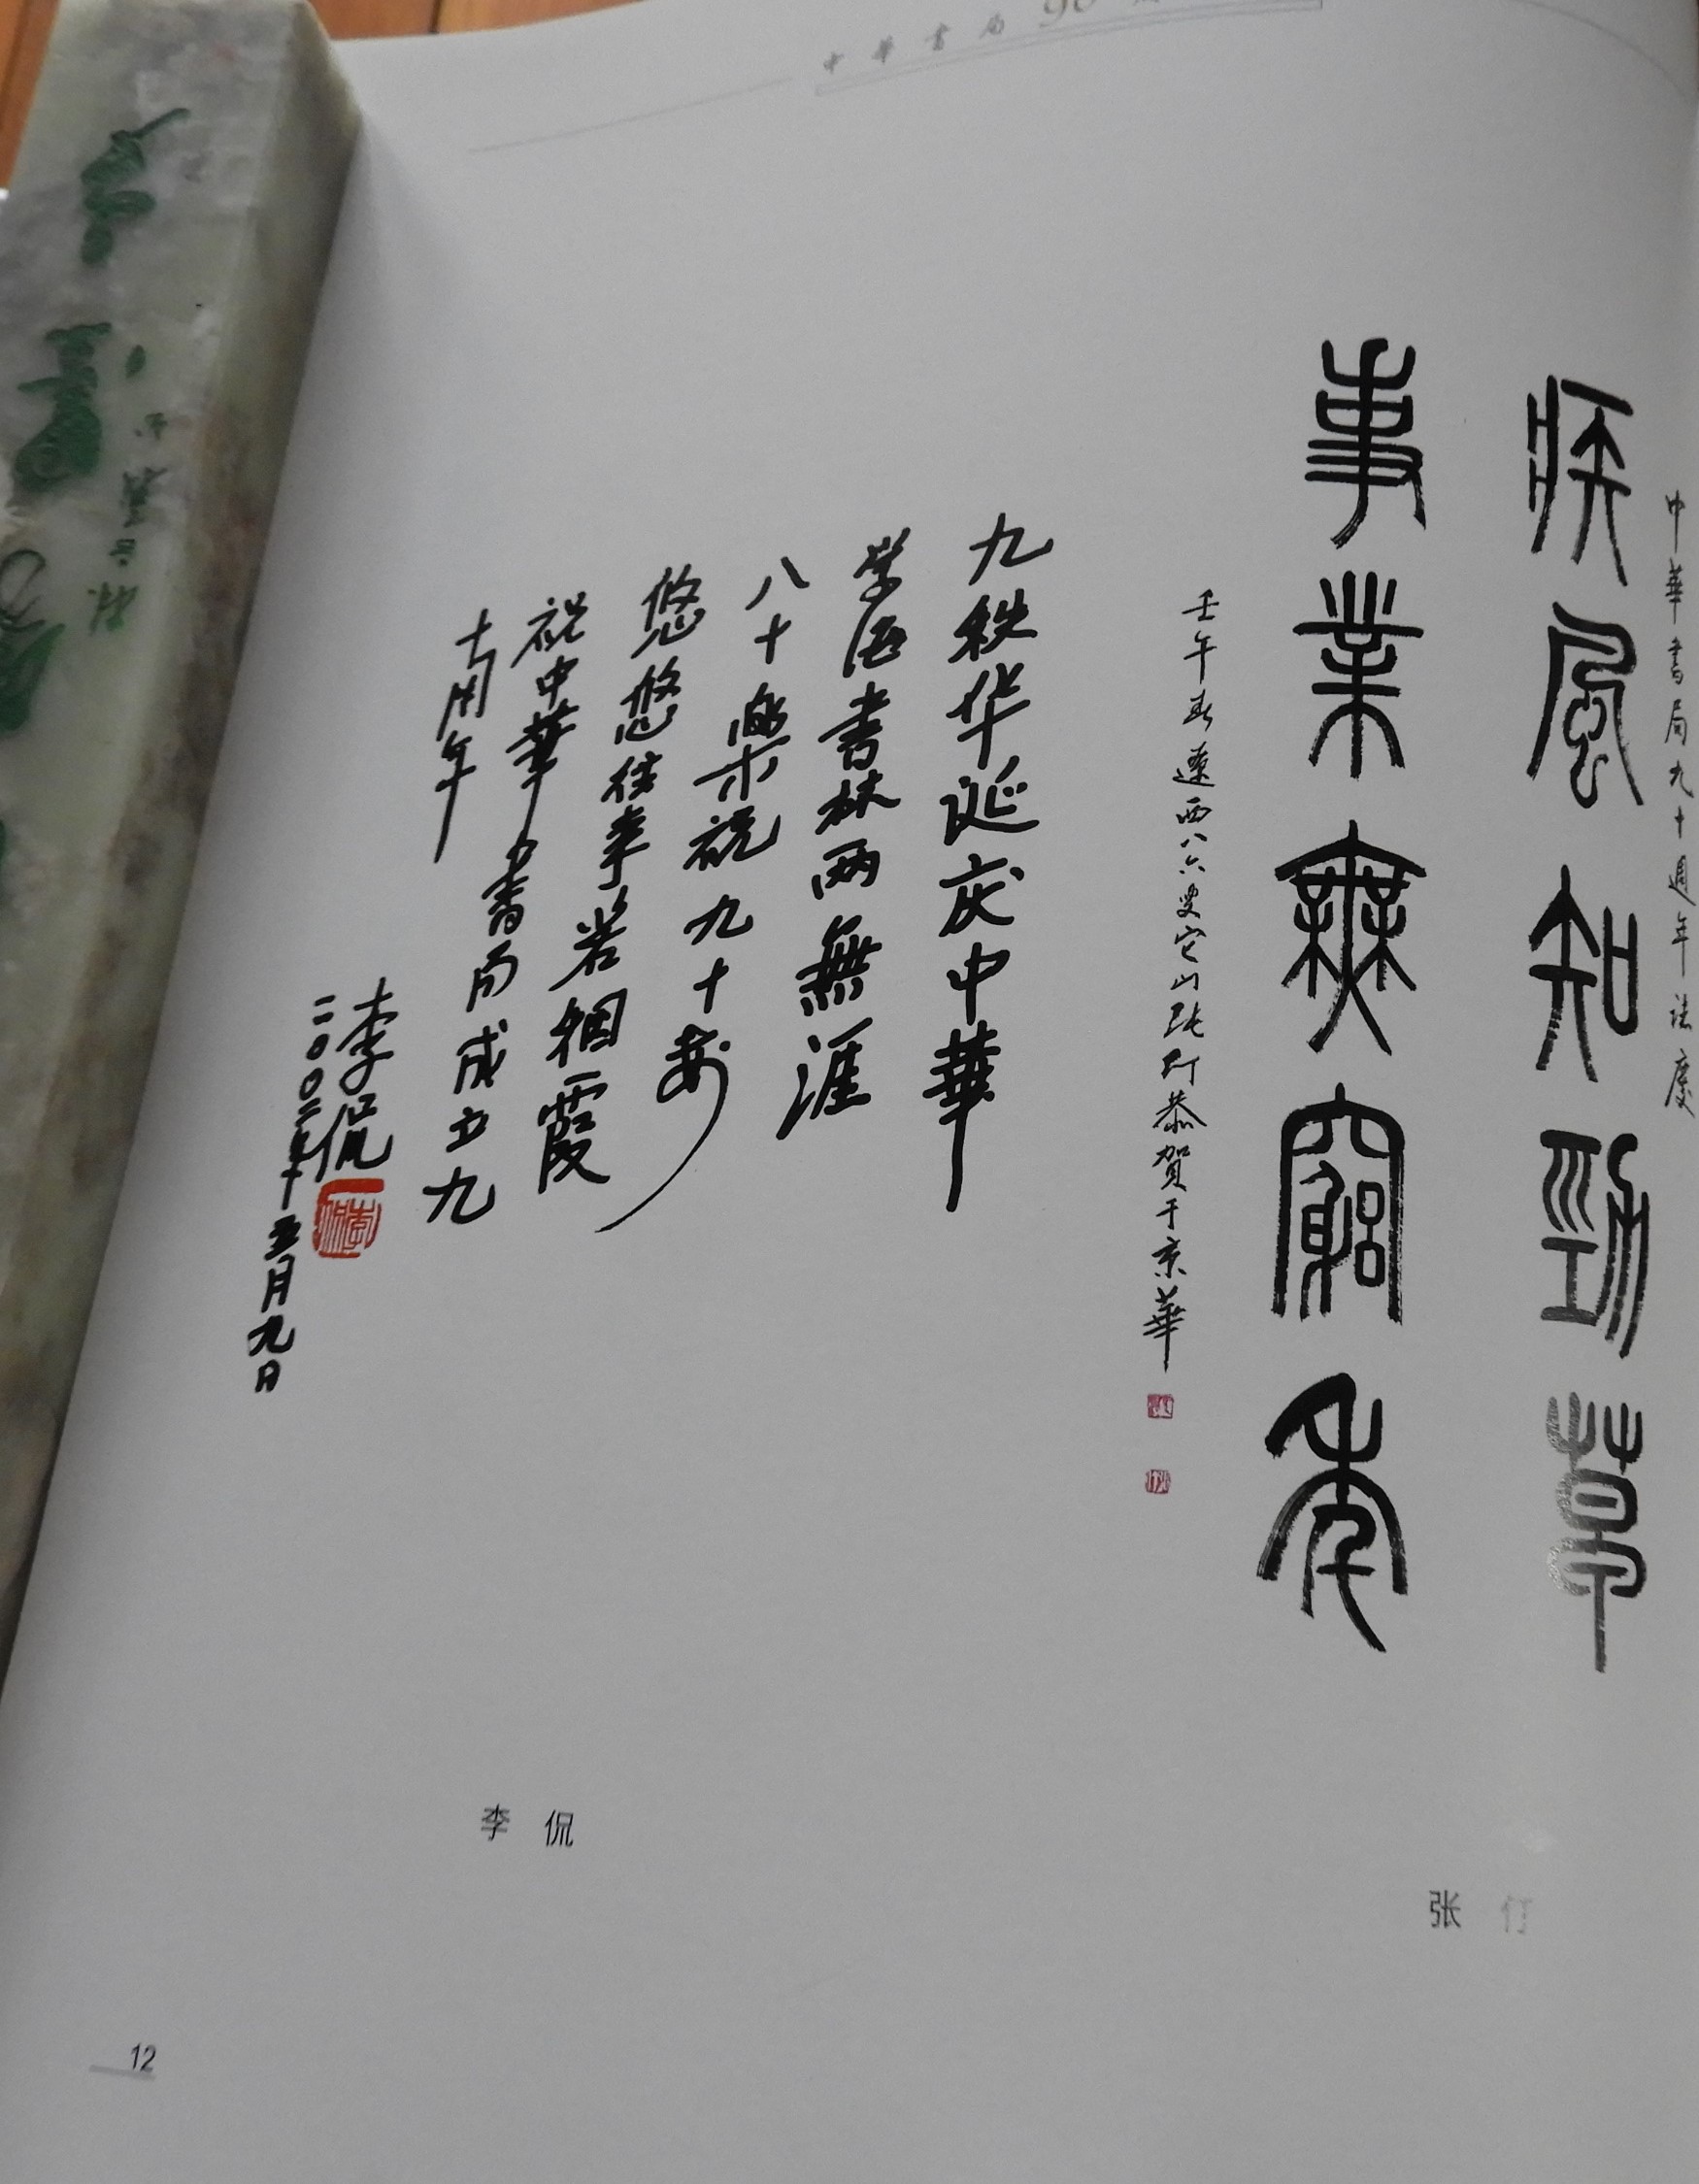 中華書局 90
中華書局九十週年法慶
疾風知勁草
事業無窮年
壬午春遼西八六叟它山張仃恭賀于京華
九秩华诞庆中華
学海書林两無涯
八十樂祝九十寿
悠悠往事若烟霞
祝中華書局成立九
十周年
李侃
二〇〇二年五月九日
李 侃
张 仃
12